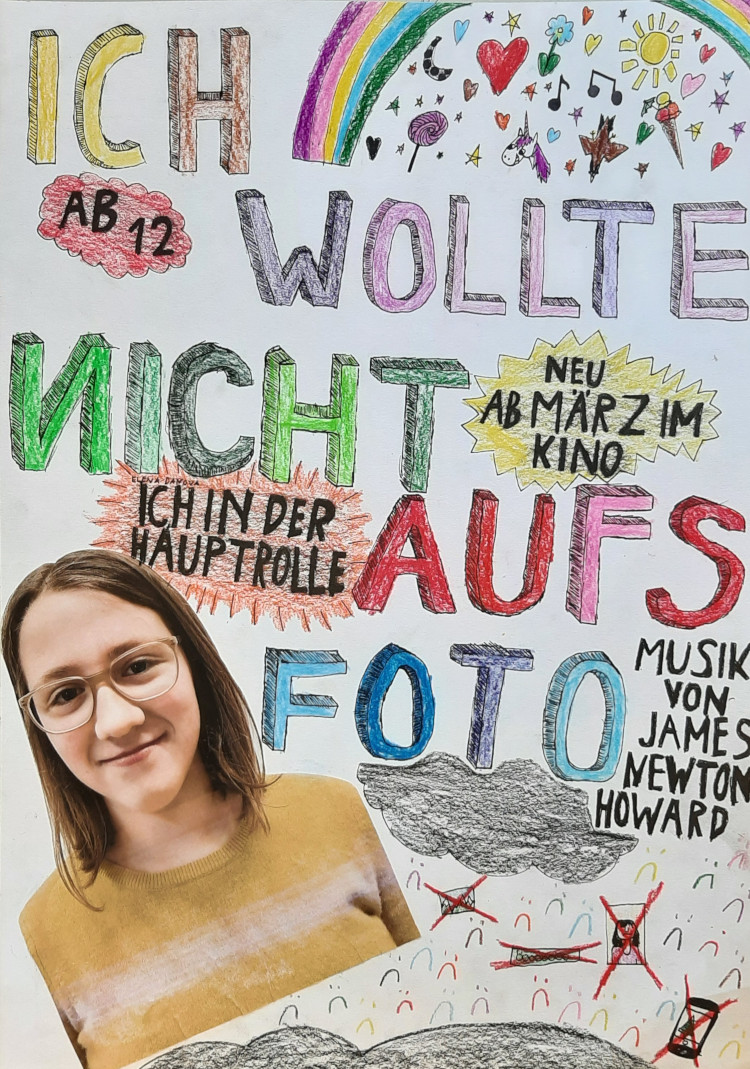 ICH
AB 12
WOLLTE
NICHT
NEU
AB MÄRZ IM
KINO
ICH IN DER
HAUPTROLLE
AUFS
FOTO
MUSIK
VON
JAMES
NEWTON
HOWARD